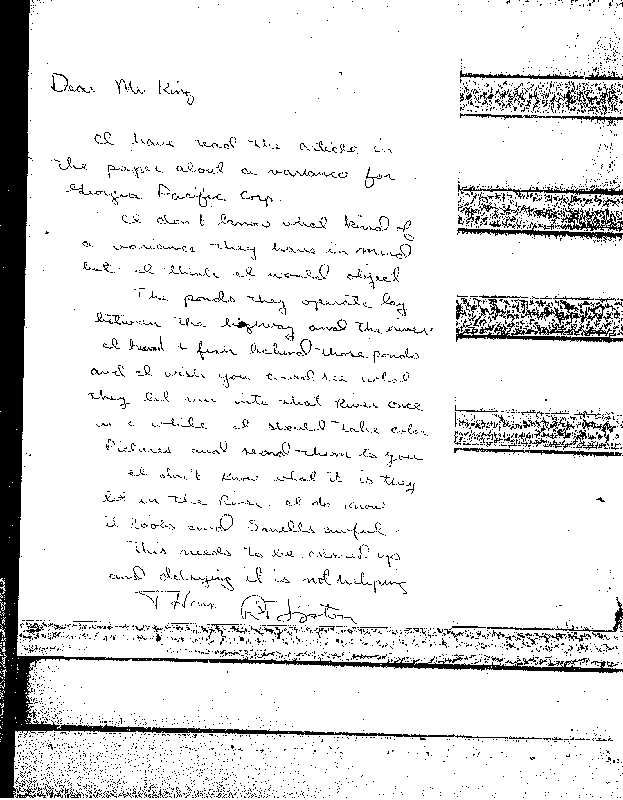 Dear Mr King
I have read the article in
the paper about a variance for
Georgia Pacific Corp.
I don't know what kind of
a variance they have in mind
but I think I would object
The ponds they operate lay
between the highway and the river
I hunt + fish behind those ponds
and I wish you could see what
they let run into that River once
in a while I should take color
Pictures and send them to you
I don't know what it is they
let in the River. I do know
it looks and Smells awful.
This needs to be cleaned up
and delaying it is not helping